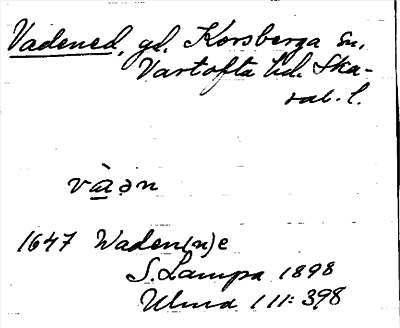 Vadened, gd. Korsberga sn.
Vartofta hd. Ska-
rab. l.
và̲ən
1647 Waden(n)e
S. Lampa 1898
Ulma 111: 398